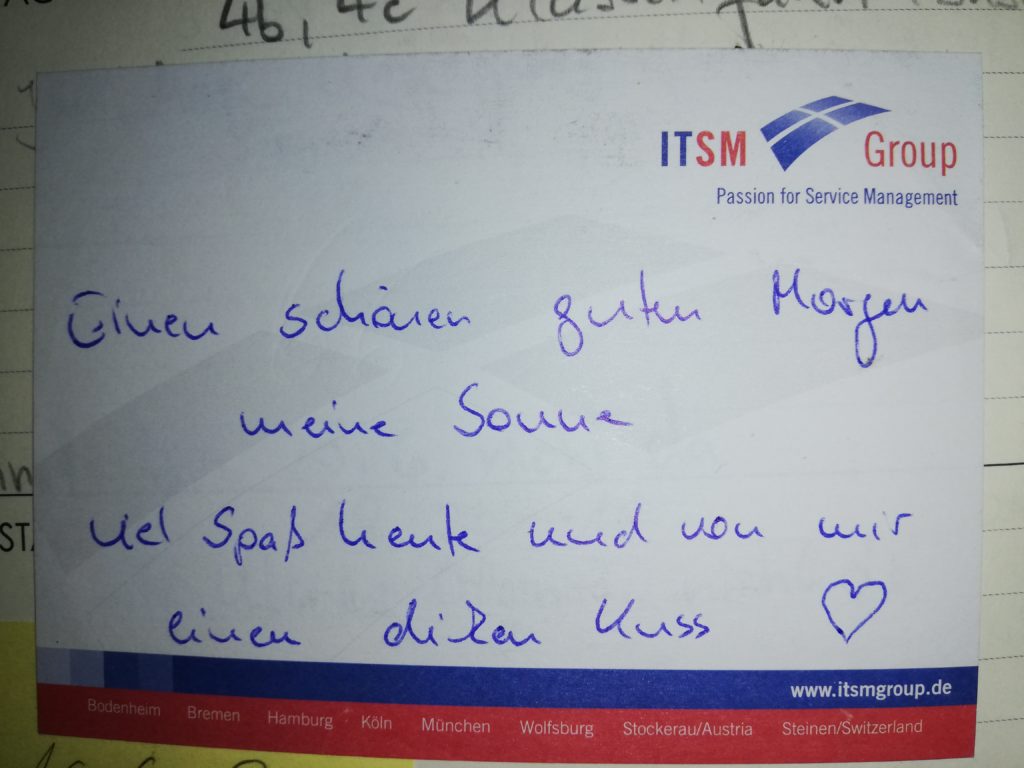 4b, 4c
ITSM Group
Passion for Service Management
Einen schönen guten Morgen
meine Sonne
viel Spaß heute und von mir
einen dicken Kuss ♡
www.itsmgroup.de
Bodenheim Bremen Hamburg Köln München Wolfsburg Stockerau/Austria Steinen/Switzerland